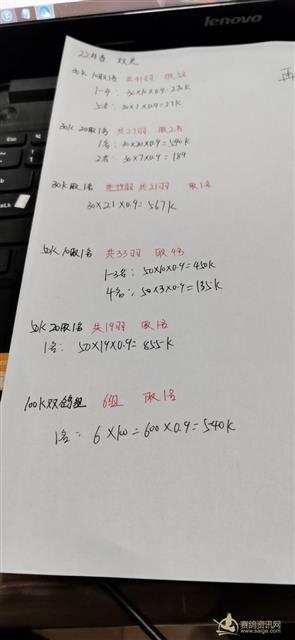 lenovo
30K 10取1名 共41羽 取5名
1-4: 30×10×0.9=270K
5名: 30×1×0.9=27K
30K 20取1名 共27羽 取2名
1名: 30×20×0.9=540K
2名: 30×7×0.9=189
30K 取1名 共21羽 取1名
30×21×0.9=567K
50K 10取1名 共33羽 取4名
1-3名: 50×10×0.9=450K
4名: 50×3×0.9=135K
50K 20取1名 共19羽 取1名
1名: 50×19×0.9=855K
100K双鸽组 6组 取1名
1名: 6×100=600×0.9=540K
再
赛鸽资讯网
www.saige.com